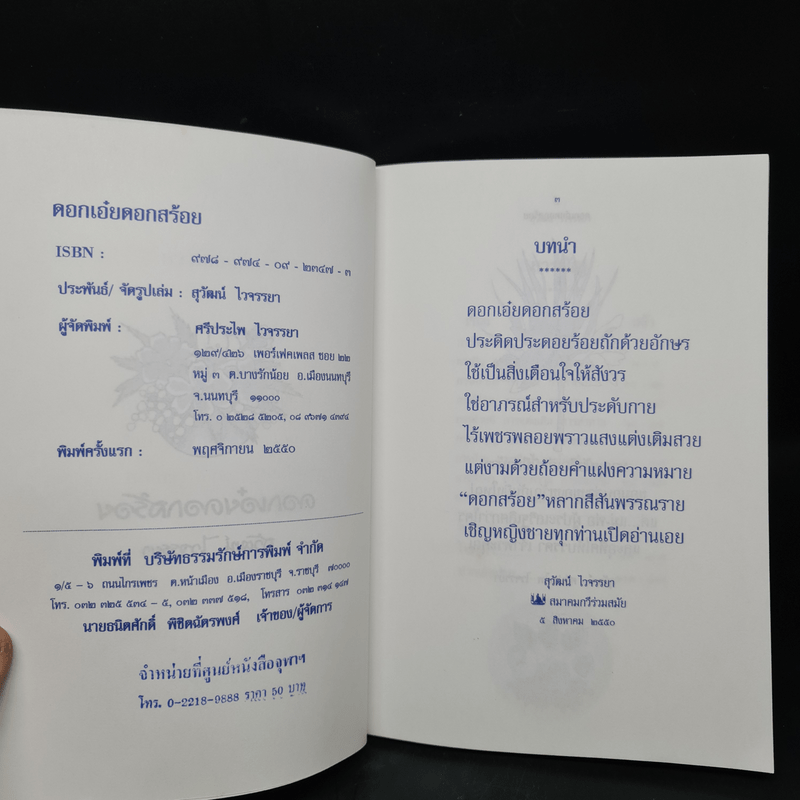 ดอกเอ๋ยดอกสร้อย
ISBN : ๙๗๘ - ๙๗๔ - ๐๙ - ๒๓๔๗ - ๓
ประพันธ์/ จัดรูปเล่ม : สุวัฒน์ ไวจรรยา
ผู้จัดพิมพ์ : ศรีประไพ ไวจรรยา
๑๒๙/๔๒๖ เพอร์เฟคเพลส ซอย ๒๒
หมู่ ๓ ต.บางรักน้อย อ.เมืองนนทบุรี
จ.นนทบุรี ๑๑๐๐๐
โทร. ๐ ๒๕๒๘ ๕๒๐๕, ๐๘ ๙๖๗๑ ๔๓๙๔
พิมพ์ครั้งแรก : พฤศจิกายน ๒๕๕๐
พิมพ์ที่ บริษัทธรรมรักษ์การพิมพ์ จำกัด
๑/๕ - ๖ ถนนไกรเพชร ต.หน้าเมือง อ.เมืองราชบุรี จ.ราชบุรี ๗๐๐๐๐
โทร. ๐๓๒ ๓๒๕ ๕๓๔ - ๕, ๐๓๒ ๓๓๗ ๕๑๘, โทรสาร ๐๓๒ ๓๑๔ ๑๘๗
นายธนิตศักดิ์ พิชิตฉัตรพงศ์ เจ้าของ/ผู้จัดการ
จำหน่ายที่ศูนย์หนังสือจุฬาฯ
โทร. 0-2218-9888 ราคา 50 บาท
๓
บทนำ
******
ดอกเอ๋ยดอกสร้อย
ประดิดประดอยร้อยถักด้วยอักษร
ใช้เป็นสิ่งเตือนใจให้สังวร
ใช่อาภรณ์สำหรับประดับกาย
ไร้เพชรพลอยพราวแสงแต่งเติมสวย
แต่งามด้วยถ้อยคำแฝงความหมาย
“ดอกสร้อย”หลากสีสันพรรณราย
เชิญหญิงชายทุกท่านเปิดอ่านเอย
สุวัฒน์ ไวจรรยา
สมาคมกวีร่วมสมัย
๕ สิงหาคม ๒๕๕๐